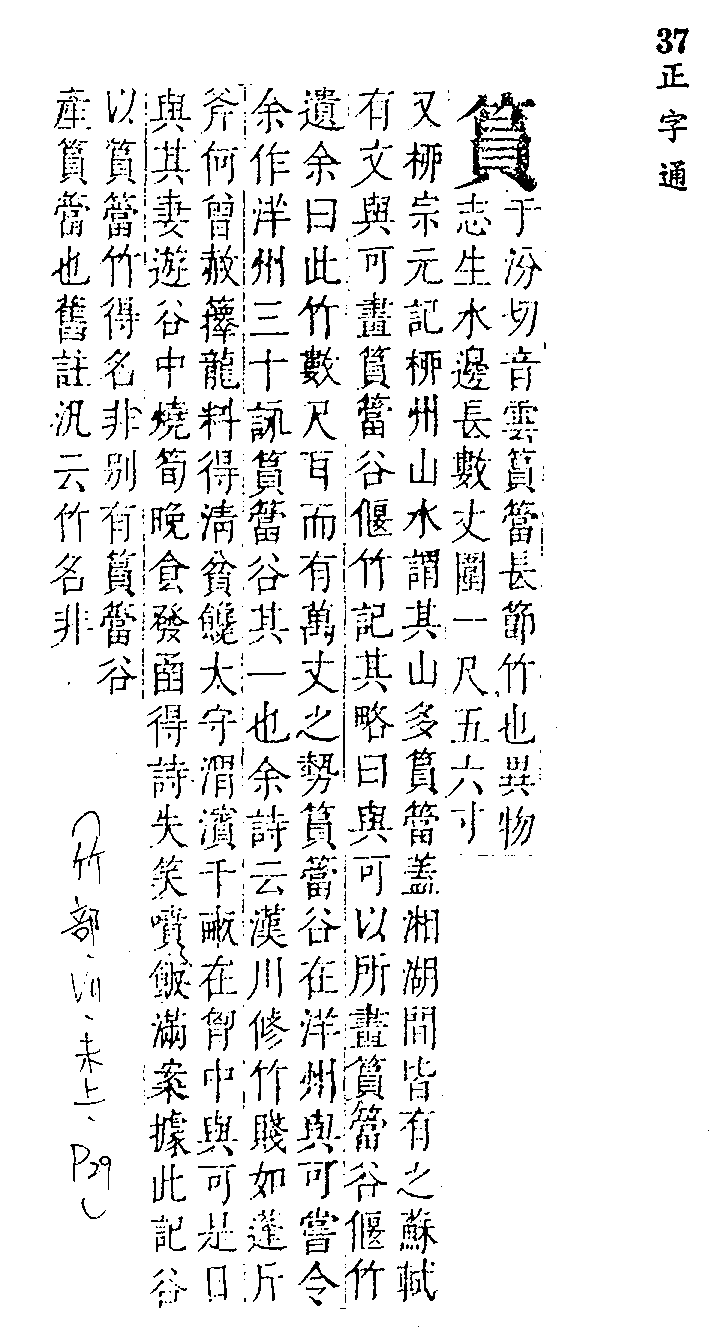 37正字通
篔于汾切音雲篔簹長節竹也異物
志生水邊長數丈圍一尺五六寸
又柳宗元記柳州山水謂其山多篔簹蓋湘湖間皆有之蘇軾
有文與可畫篔簹谷偃竹記其略曰與可以所畫篔簹谷偃竹
遺余曰此竹數尺耳而有萬丈之勢篔簹谷在洋州與可嘗令
余作洋州三十詠篔簹谷其一也余詩云漢川修竹賤如蓬斤
斧何曾赦籜龍料得清貧饞太守渭濱千畝在胷中與可是日
與其妻遊谷中燒筍晚食發函得詩失笑噴飯滿案據此記谷
以篔簹竹得名非別有篔簹谷
產篔簹也舊註汎云竹名非
(竹部、VII、未上、P29)